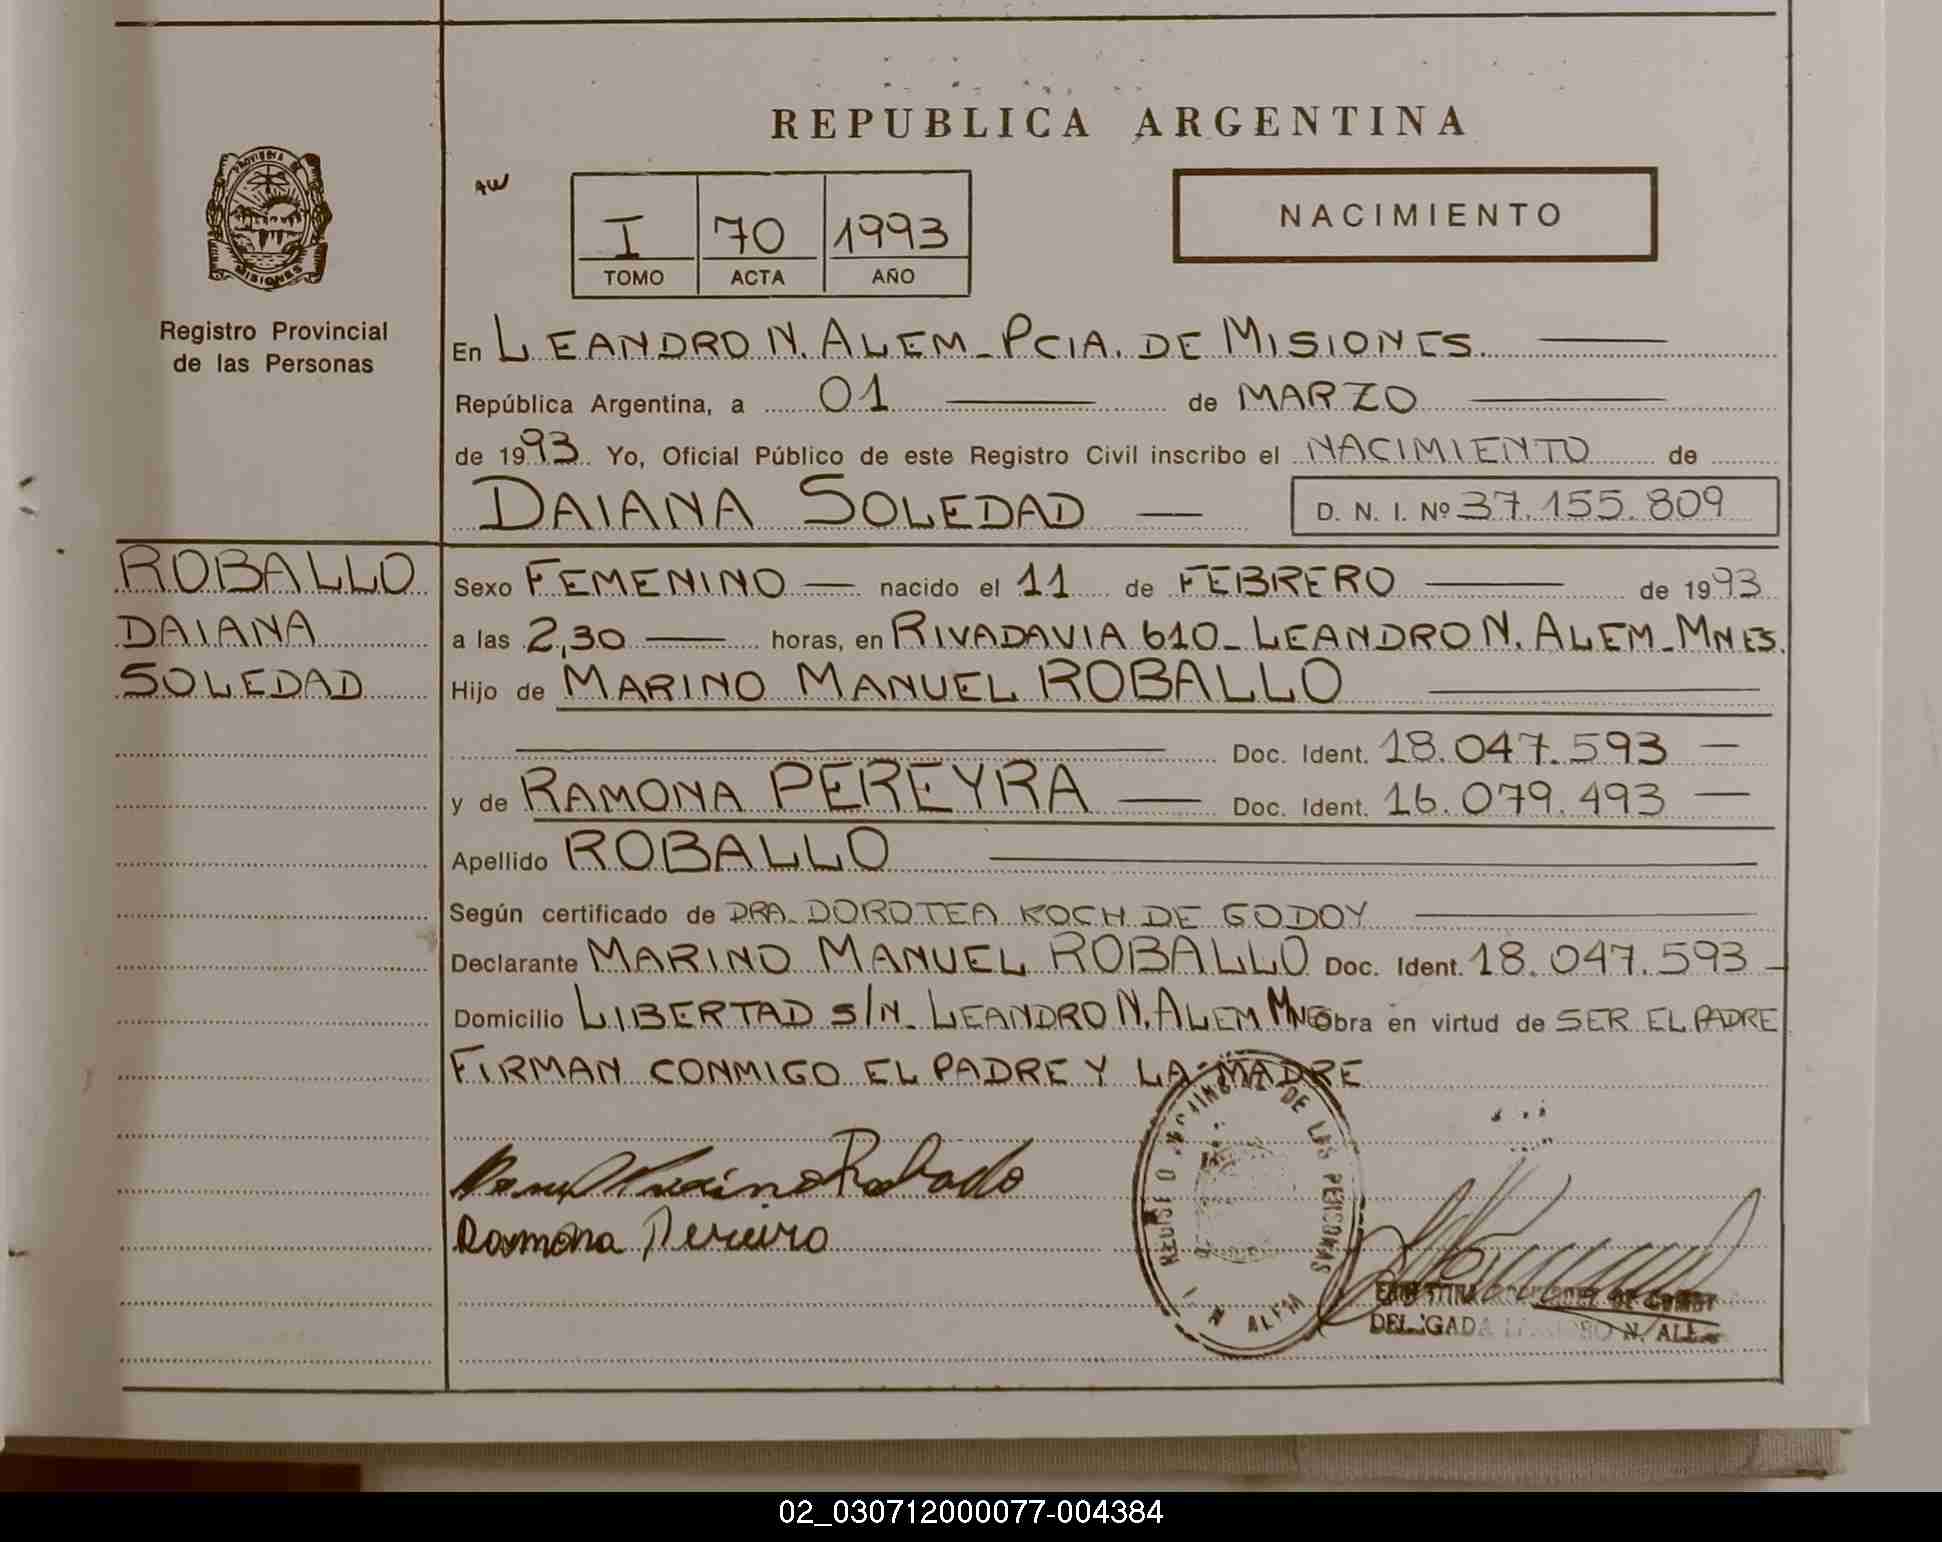 REPUBLICA ARGENTINA
PROVINCIA DE
MISIONES
Registro Provincial
de las Personas
AW
I 70 1993
TOMO ACTA AÑO
NACIMIENTO
En LEANDRO N. ALEM - PCIA. DE MISIONES.
República Argentina, a 01 de MARZO
de 1993. Yo, Oficial Público de este Registro Civil inscribo el NACIMIENTO de
DAIANA SOLEDAD — D. N. I. Nº 37.155.809
ROBALLO
DAIANA
SOLEDAD
Sexo FEMENINO — nacido el 11 de FEBRERO — de 1993
a las 2,30 — horas, en RIVADAVIA 610 - LEANDRO N. ALEM - MNES.
Hijo de MARINO MANUEL ROBALLO
Doc. Ident. 18.047.593 —
y de RAMONA PEREYRA — Doc. Ident. 16.079.493 —
Apellido ROBALLO
Según certificado de DRA. DOROTEA KOCH DE GODOY
Declarante MARINO MANUEL ROBALLO Doc. Ident. 18.047.593 —
Domicilio LIBERTAD S/N - LEANDRO N. ALEM MNES Obra en virtud de SER EL PADRE
FIRMAN CONMIGO EL PADRE Y LA MADRE
Ramona Pereira
DE LAS PERSONAS
N ALEM
02_030712000077-004384